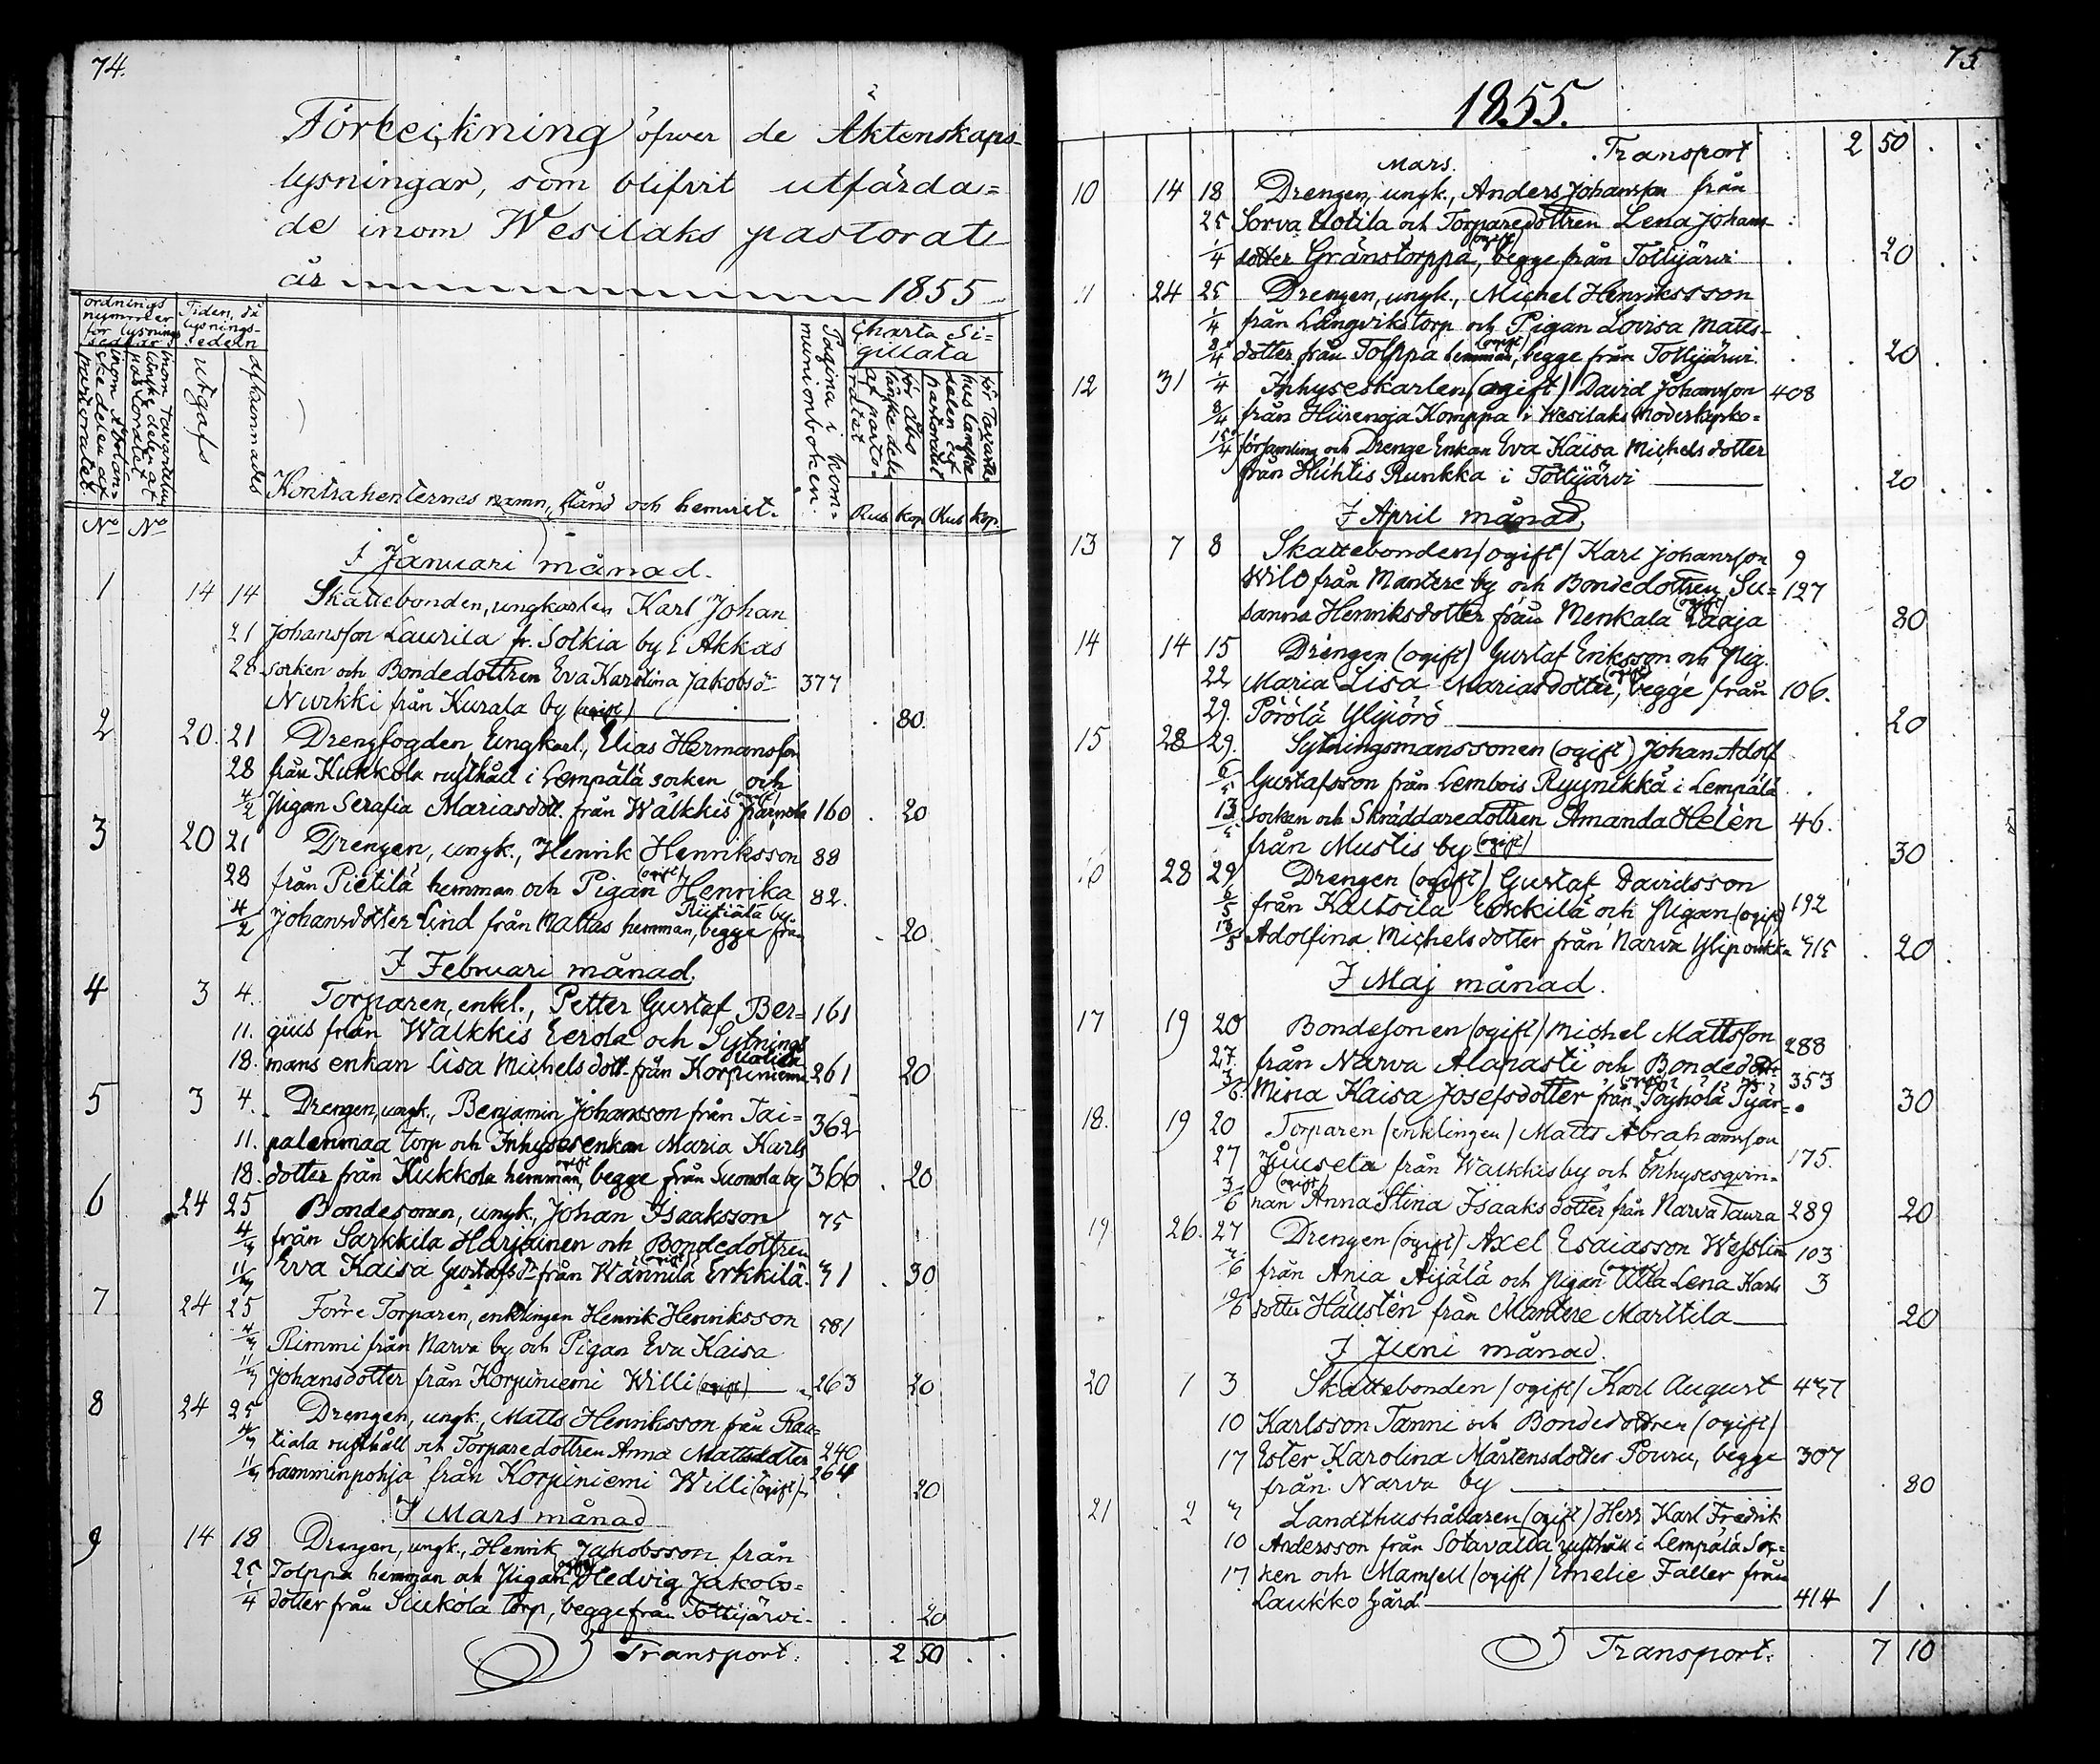 74.
Förteckning öfwer de Äktenskaps-
lysningar, som blifvit utfärda=
de inom Wesilaks pastorat
år 1855
ordnings nummer för lysnings sedlar
Tiden, då lysnings-sedeln
utgafs
afkunnades
Kontrahenternes namn, stånd och hemvist.
Pagina i kom=munionboken.
Charta Si=gillata
No No
Rub kop Rub kop.
I Januari månad.
1 14 14 Skattebonden, ungkarlen Karl Johan
21 Johansson Laurila fr. Sotkia by i Akkas
28 socken och Bondedottren Eva Karolina Jakobsdr 377
Nurkki från Kurala by (ogift) 80.
2 20. 21 Drengfogden, Ungkarl., Elias Hermansson
28 från Kukkola rusthåll i Lempälä socken och
4/2 Pigan Serafia Mariasdott. från Wälkkis (ogift) 160 20
3 20 21 Drengen, ungk., Henrik Henriksson 88
28 från Pietilä hemman och Pigan (ogift) Henrika 82.
4/2 Johansdotter Lind från Mattas hemman, begge från Riitiälä by. 20
I Februari månad.
4 3 4. Torparen, enkl., Petter Gustaf Ber= 161
11. gius från Walkkis Eerola och Sytnings
18. mans enkan Lisa Michelsdott. från Korpiniemi 261 20
5 3 4. Drengen, ungk., Benjamin Johansson från Tai= 362
11. palenmaa torp och Inhysesenkan Maria Karls
18. dotter från Kukkola hemman, begge från Suomela by 366 20
6 24 25 Bondesonen, ungk., Johan Isaaksson 75
4/3 från Sarkkila Harjuinen och Bondedottren
11/3 Eva Kaisa Gustafsdr (ogift) från Wännilä Erkkilä. 31 30
7 24 25 Förre Torparen, enklingen Henrik Henriksson 581
4/3 Rimmi från Narva by och Pigan Eva Kaisa
11/3 Johansdotter från Korpiniemi Willi (ogift) 263 20
8 24 25 Drengen, ungk., Matts Henriksson från Raa=
4/3 tiala rusthåll och Torparedottren Anna Mattsdotter 240
11/3 Lamminpohja från Korpiniemi Willi (ogift) 264 20
I Mars månad
9 14 18 Drengen, ungk., Henrik Jakobsson från
25 Tolppa hemman och Pigan (ogift) Hedvig Jakobs=
1/4 dotter från Siukola torp, begge från Tottijärvi 20
Transport. 2 50
75
1855.
Mars. Transport 2 50
10 14 18 Drengen, ungk., Anders Johansson från
25 Sorva Uotila och Torparedottren Lena Johans-
1/4 dotter Gränstorppa (ogift), begge från Tottijärvi 20
11 24 25 Drengen, ungk., Michel Henriksson
1/4 från Långvikstorp och Pigan Lovisa Matts-
8/4 dotter från Tolppa hemman (ogift), begge från Tottijärvi. 20
12 31 1/4 Inhyseskarlen (ogift) David Johansson 408
8/4 från Hiirenoja Komppa i Wesilaks Moderkyrko=
15/4 församling och Drenge Enkan Eva Kaisa Michelsdotter
från Huhtis Runkka i Tottijärvi 20
I April månad.
13 7 8 Skattebonden (ogift) Karl Johansson 9
Wilo från Mantere by och Bondedottren Su= 127
sanna Henriksdotter från Menkala (ogift) Laaja 80
14 14 15 Drengen (ogift) Gustaf Eriksson och Pig.
22 Maria Lisa Mariasdotter, begge från 106.
29. Pörölä Ylijörö 20
15 28 29. Sytningsmanssonen (ogift) Johan Adolf
6/5 Gustafsson från Lembois Ryynikkä i Lempälä
13/5 socken och Skräddaredottren Amanda Helén 46.
från Mustis by (ogift) 30
16 28 29 Drengen (ogift) Gustaf Davidsson
6/5 från Kaltsila Erkkilä och Pigan (ogift) 192
13/5 Adolfina Michelsdotter från Narva Ylipoukka 315 20
I Maj månad.
17 19 20 Bondesonen (ogift) Michel Mattsson 288
27. från Narva Alapasti och Bondedott:
3/6. Mina Kaisa Josefsdotter från Pöyhölä 353 30
18. 19 20 Torparen (enklingen) Matts Abrahamsson
27 Juusela från Walkkis by och Inhyseqvin= 175.
3/6 nan (ogift) Anna Stina Isaaksdotter från Narva Taura 289 20
19 26. 27 Drengen (ogift) Axel Esaiasson Wesslin 103
3/6 från Ania Äijälä och Pigan (ogift) Ulla Lena Karls 3
10/6 dotter Häusten från Mantere Marttila 20
I Juni månad.
20 1 3 Skattebonden (ogift) Karl August 437
10 Karlsson Tanni och Bondedottren (ogift)
17 Ester Karolina Mårtensdotter Pouru, begge 307
från Narva by 80
21 2 3 Landthushållaren (ogift) Herr Karl Fredrik
10 Andersson från Sotavalta rusthåll i Lempälä Soc=
17 ken och Mamsell (ogift) Emelie Faller från
Laukko Gård 414 1
Transport. 7 10